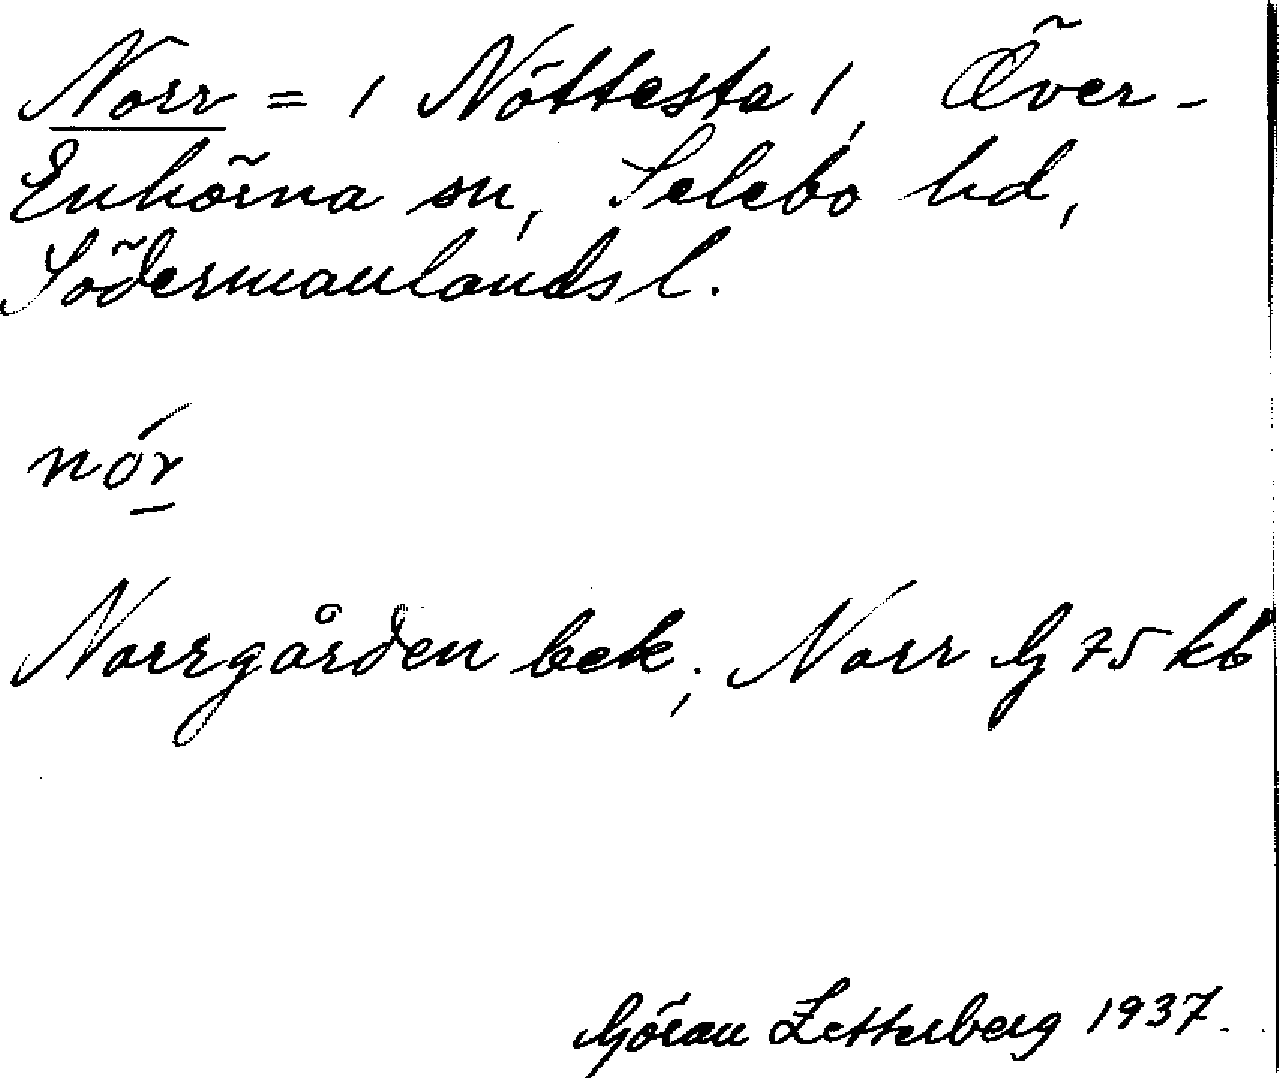 Norr = / Nöttesta /, Över-
Enhörna sn, Selebo hd,
Södermanlands l.
nór
Norrgården bek; Norr G 75 kb
Göran Zetterberg 1937.